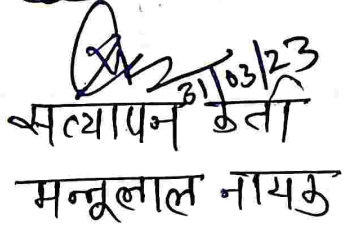 31/03/23
सत्यापन कर्ता
मन्नूलाल नायक